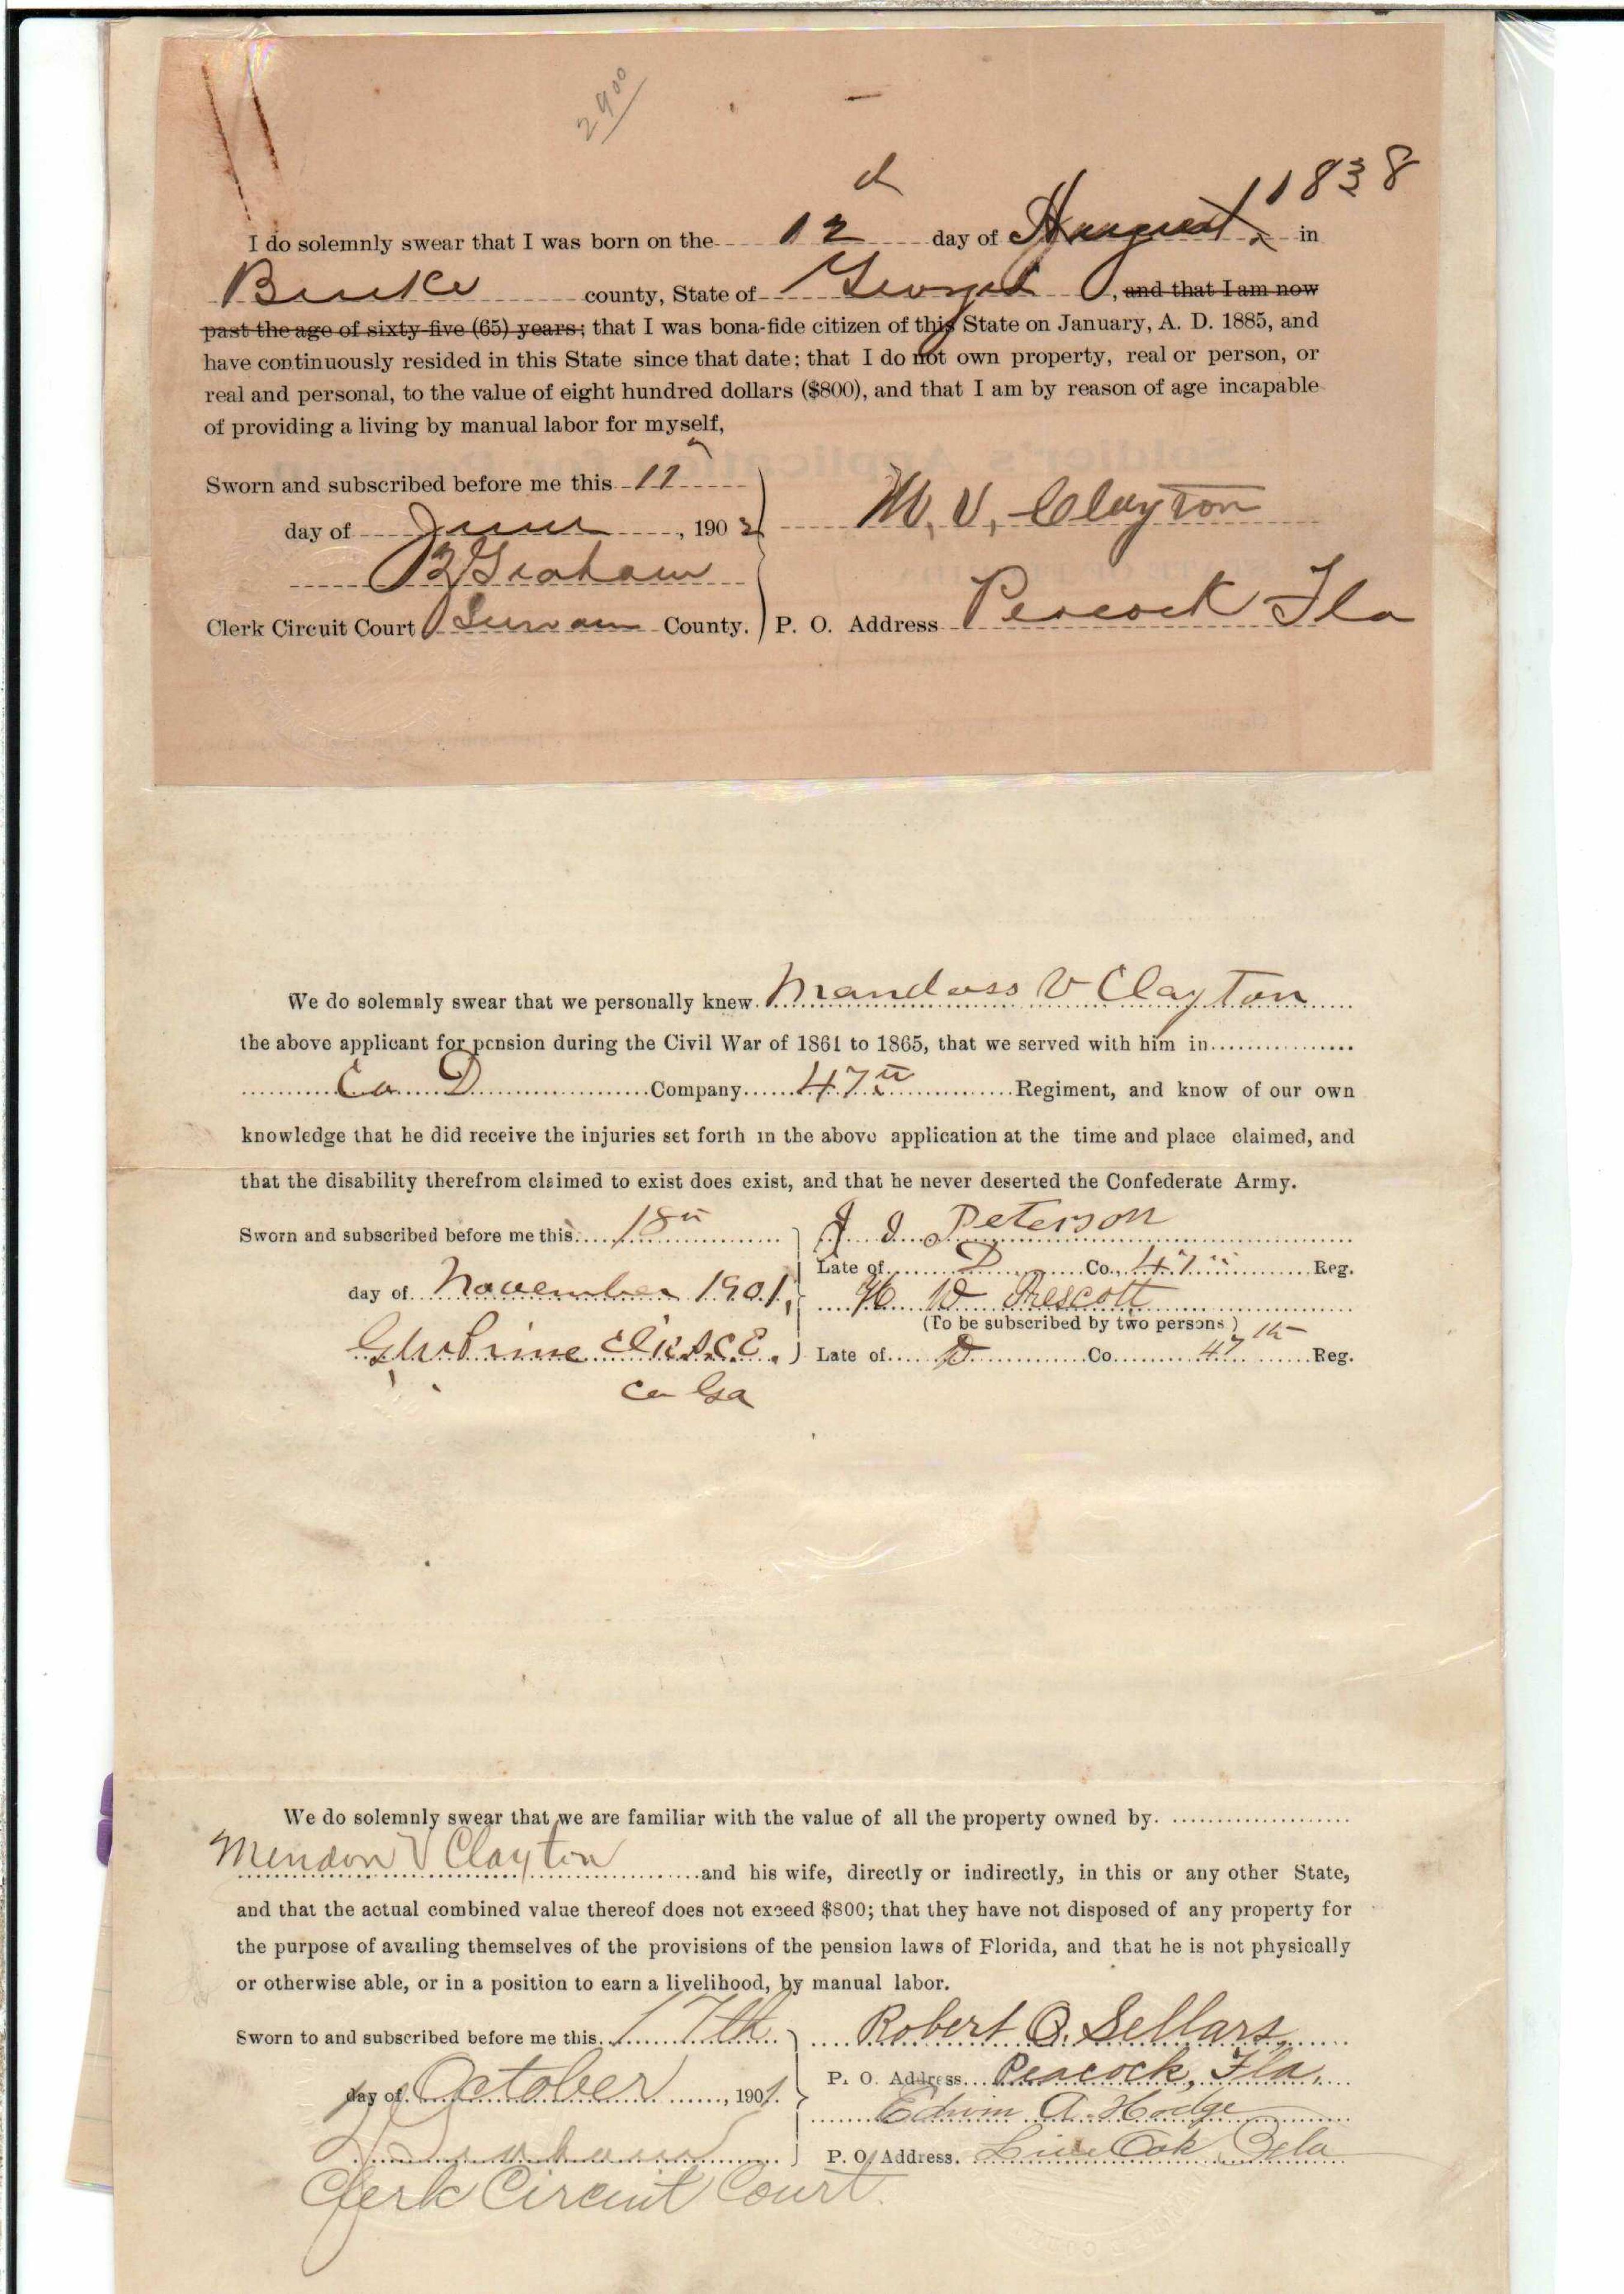 2900
d
1838
I do solemnly swear that I was born on the 12 day of August, in
Burke county, State of Georgia, and that I am now
past the age of sixty-five (65) years; that I was bona-fide citizen of this State on January, A. D. 1885, and
have continuously resided in this State since that date; that I do not own property, real or person, or
real and personal, to the value of eight hundred dollars ($800), and that I am by reason of age incapable
of providing a living by manual labor for myself,
Sworn and subscribed before me this 11
day of June, 1902
M. V. Clayton
Graham
Clerk Circuit Court Suwanee County. P. O. Address Peacock Fla
We do solemnly swear that we personally knew Mandoss V Clayton
the above applicant for pension during the Civil War of 1861 to 1865, that we served with him in
Co D Company 47th Regiment, and know of our own
knowledge that he did receive the injuries set forth in the above application at the time and place claimed, and
that the disability therefrom claimed to exist does exist, and that he never deserted the Confederate Army.
Sworn and subscribed before me this 18th
J. J. Peterson
Late of D Co., 47th Reg.
day of November 1901,
H W Prescott
(To be subscribed by two persons)
Late of D Co. 47th Reg.
Co Ga
We do solemnly swear that we are familiar with the value of all the property owned by.
Mendon V Clayton and his wife, directly or indirectly, in this or any other State,
and that the actual combined value thereof does not exceed $800; that they have not disposed of any property for
the purpose of availing themselves of the provisions of the pension laws of Florida, and that he is not physically
or otherwise able, or in a position to earn a livelihood, by manual labor.
Sworn to and subscribed before me this 17th
Robert O. Sellars
P. O. Address Peacock, Fla.
day of October, 1901.
Edwin A. Hodge
Graham
P. O. Address. Live Oak Fla
Clerk Circuit Court.